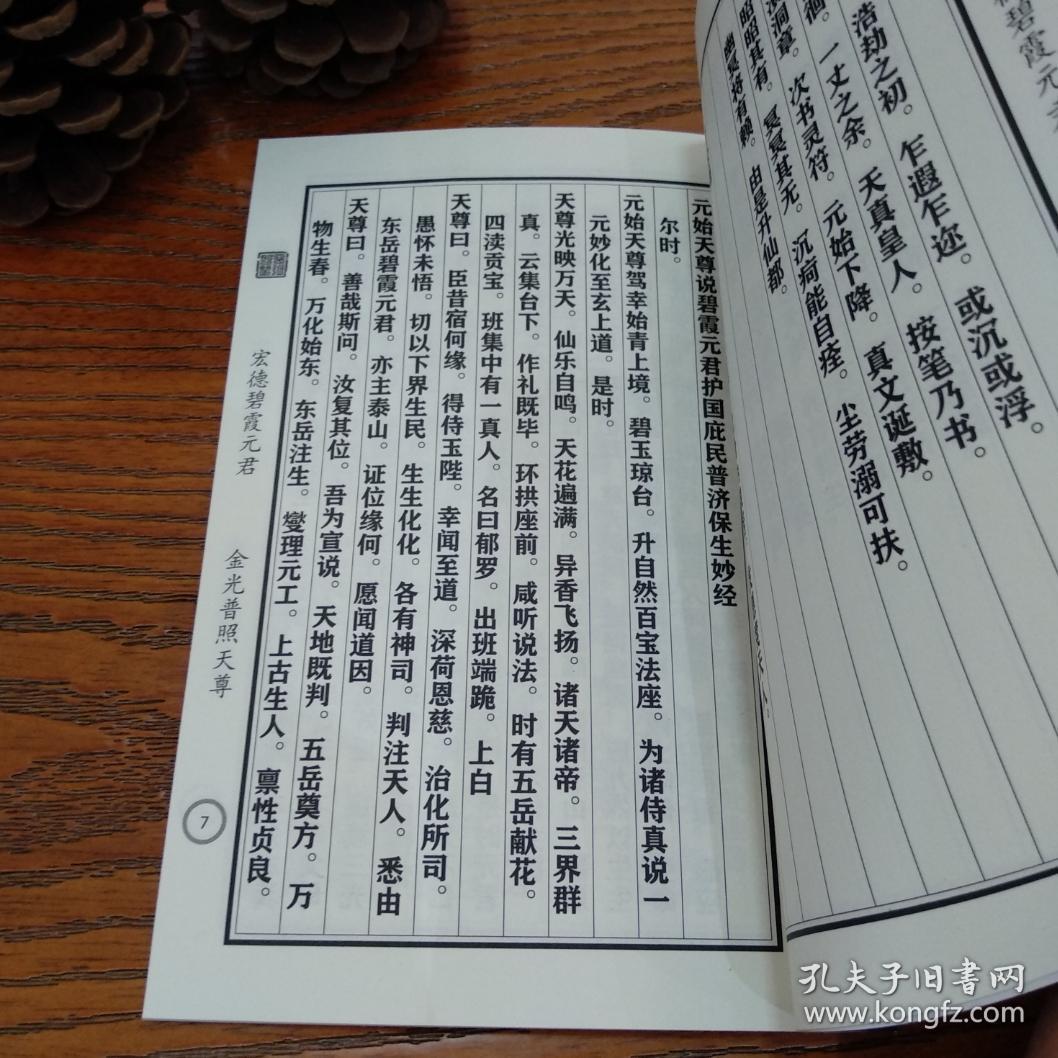 碧霞元
浩劫之初。乍遐乍迩。或沉或浮。
徊。一丈之余。天真皇人。按笔乃书。
洞章。次书灵符。元始下降。真文诞敷。
昭昭其有。冥冥其无。沉疴能自痊。尘劳溺可扶。
幽冥将有赖。由是升仙都。
元始天尊说碧霞元君护国庇民普济保生妙经
尔时。
元始天尊驾幸始青上境。碧玉琼台。升自然百宝法座。为诸侍真说一
元妙化至玄上道。是时。
天尊光映万天。仙乐自鸣。天花遍满。异香飞扬。诸天诸帝。三界群
真。云集台下。作礼既毕。环拱座前。咸听说法。时有五岳献花。
四渎贡宝。班集中有一真人。名曰郁罗。出班端跪。上白
天尊曰。臣昔宿何缘。得侍玉陛。幸闻至道。深荷恩慈。治化所司。
愚怀未悟。切以下界生民。生生化化。各有神司。判注天人。悉由
东岳碧霞元君。亦主泰山。证位缘何。愿闻道因。
天尊曰。善哉斯问。汝复其位。吾为宣说。天地既判。五岳奠方。万
物生春。万化始东。东岳注生。燮理元工。上古生人。禀性贞良。
宏德碧霞元君
金光普照天尊
7
孔夫子旧书网
www.kongfz.com